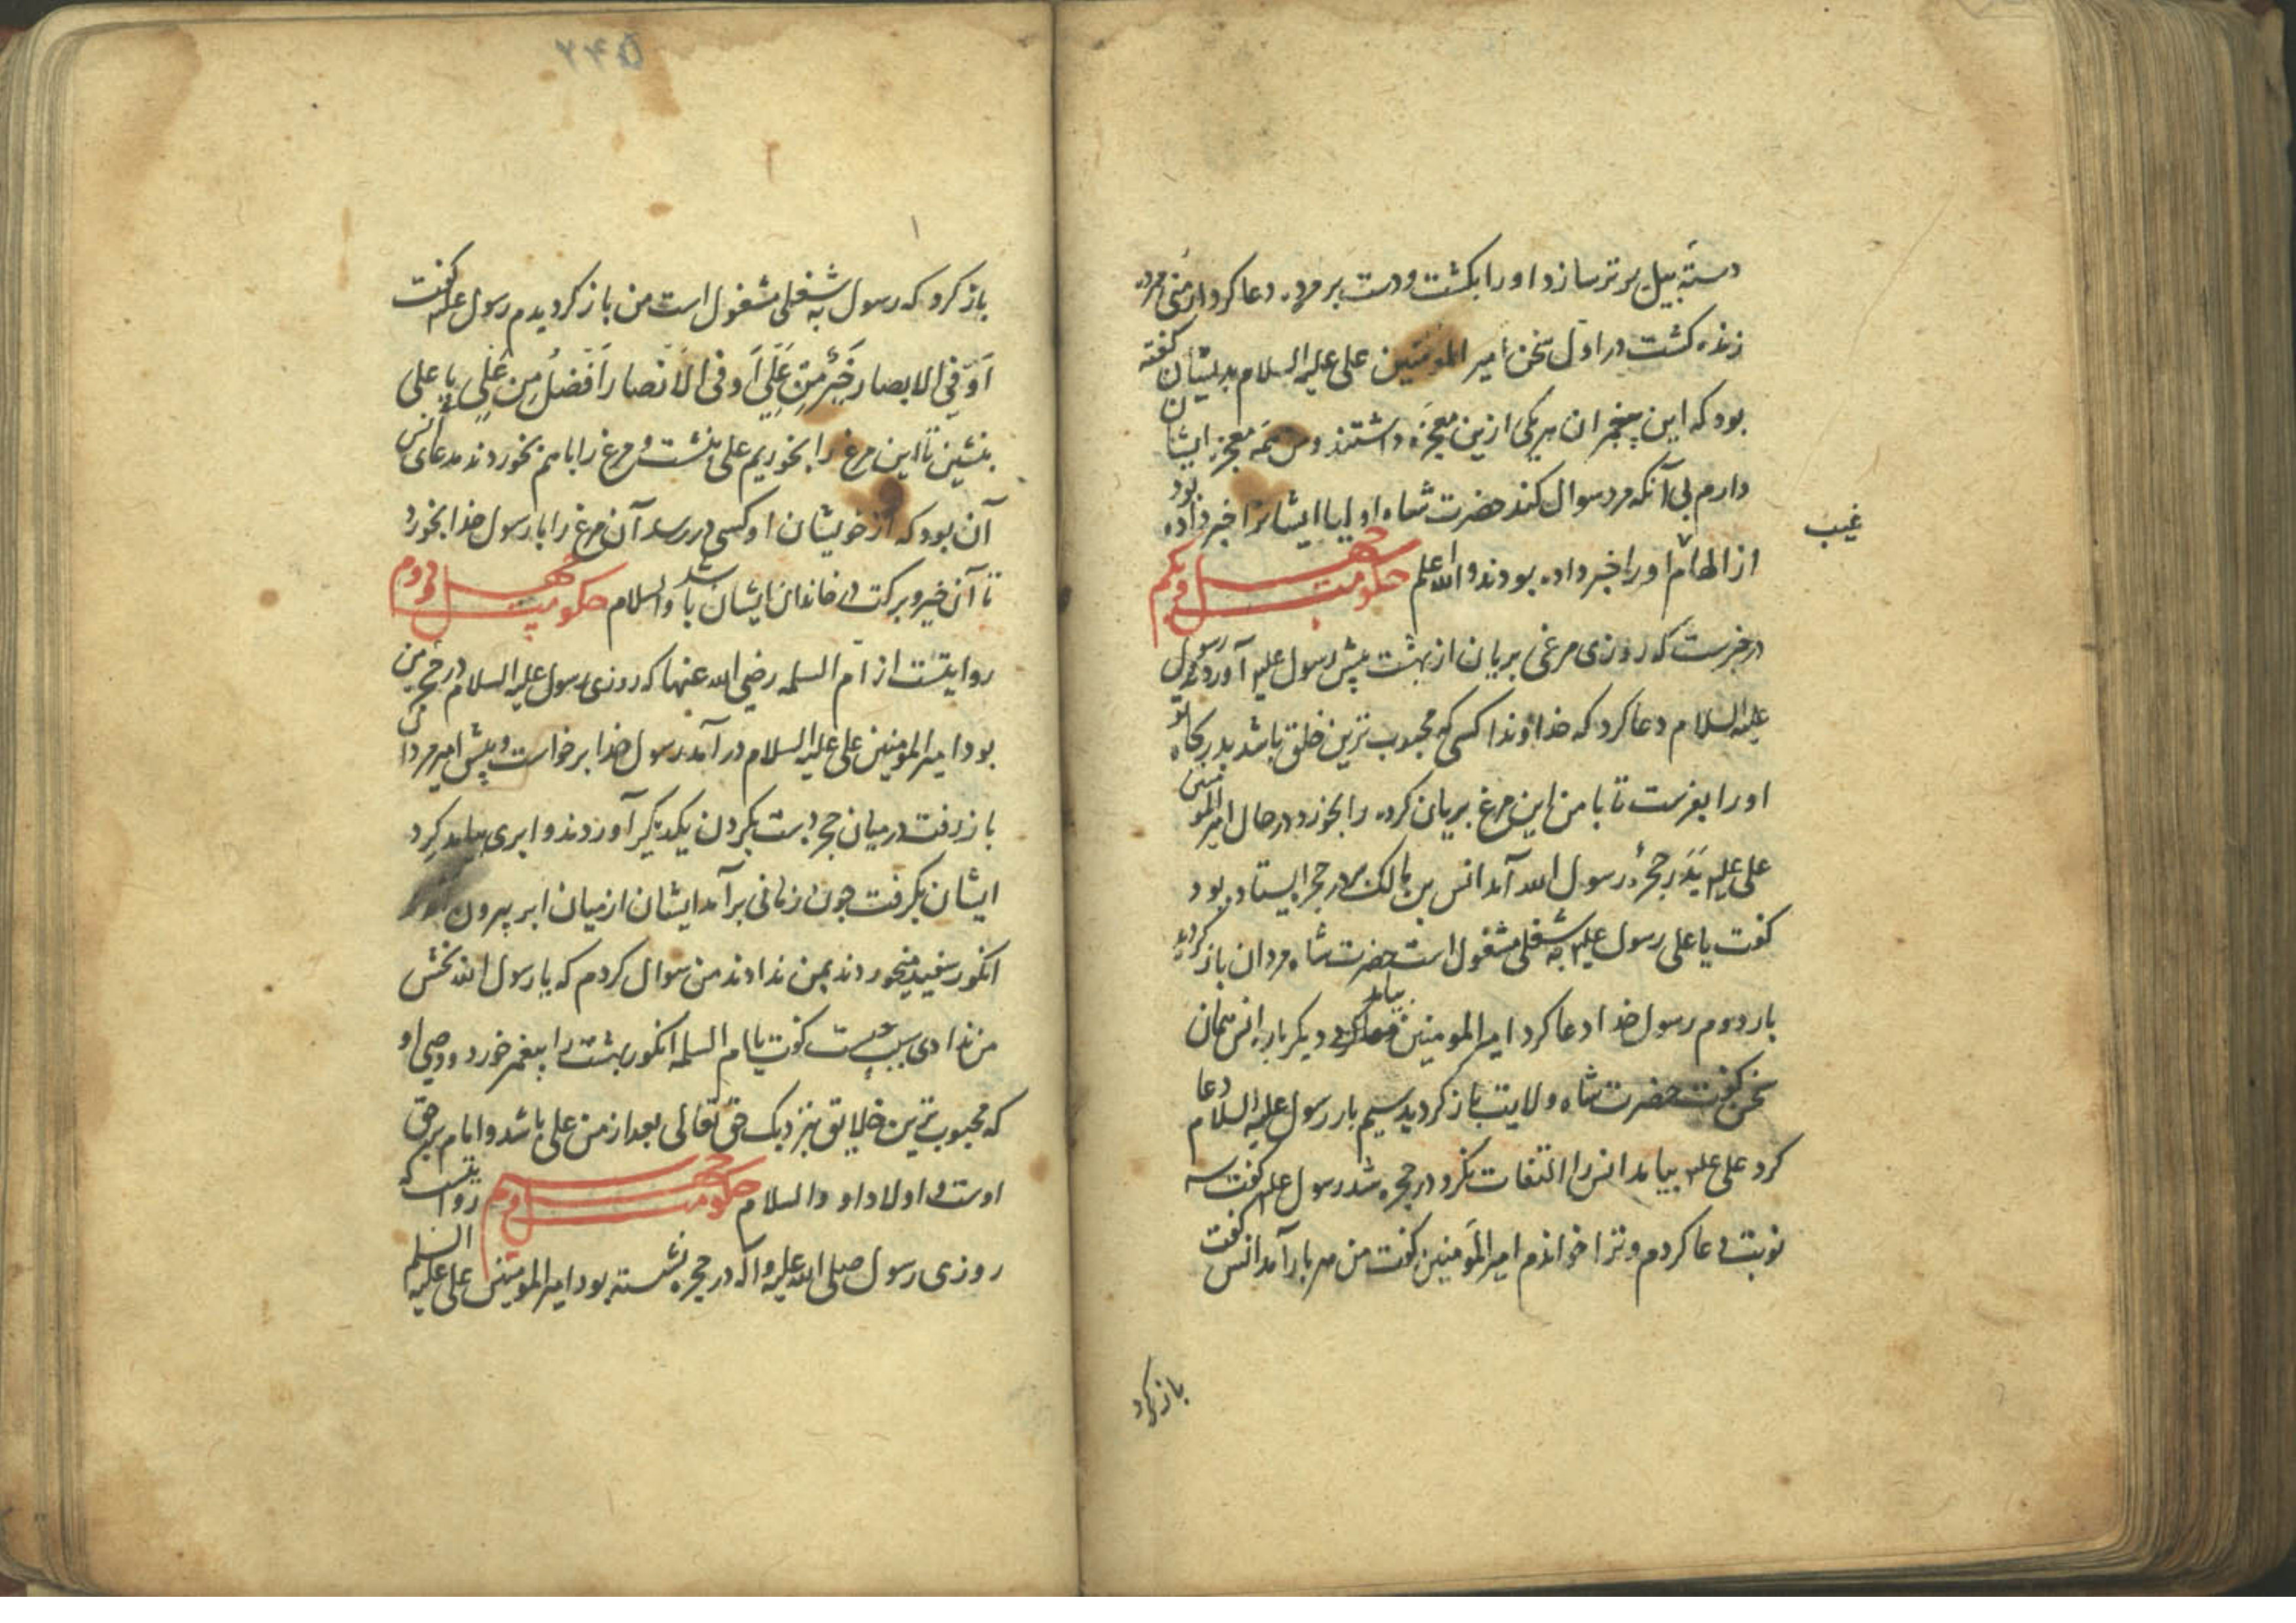 دسته بیل بر تر سازد او را بکشت و دست بر مرده دعا کرد ارمنی مرده
زنده کشت در اول سخن امیر المؤمنین علی علیه السلام بدیشان کفته
بود که این پیغمبران هریکی ازین معجزه داشتند و من همه معجزه ایشان
دارم بی آنکه مرد سوال کند حضرت شاه اولیا ایشانرا خبر داده بود
از الهام او را خبر داده بودند والله اعلم حکومت چهل و یکم
غیب
در خبرست که روزی مرغی بریان از بهشت پیش رسول علیه آوردند رسول
علیه السلام دعا کرد که خداوندا کسی که محبوب ترین خلق باشد بدرکاه تو
او را بفرست تا با من این مرغ بریان کرده را بخورد در حال امیر المومنین
علی علیه بدر حجره رسول الله آمد انس بن مالک در حجر ایستاده بود
کفت یا علی رسول علیه به شغلی مشغول است حضرت شاه مردان باز کردید
بار دوم رسول خدا دعا کرد امیر المومنین بیامد دیکر باره انس همان
سخن کفت حضرت شاه ولایت باز کردید سیم بار رسول علیه السلام دعا
کرد علی علیه بیامد انس را التفات نکرد در حجره شد رسول علیه کفت سه
نوبت دعا کردم و ترا خواندم امیر المومنین کفت من هر بار آمد انس کفت
باز کرد
۲۴۵
باز کرد که رسول به شغلی مشغول است من باز کردیدم رسول علیه کفت
اَوَ فِی الابصار خَیْرٌ مِن عَلِّیٍ اَو فی الاَنصار اَفضلُ مِن عَلِیٍ یا علی
بنشین تا این مرغ را بخوریم علی بنشست و مرغ را با هم بخوردند مدعای انس
آن بود که از خویشان او کسی در رسد آن مرغ را با رسول خدا بخورد
تا آن خیر و برکت در خاندان ایشان باشد والسلام حکومت چهل و دوم
روایتست از ام السلمه رضی الله عنها که روزی رسول علیه السلام در حجره من
بود امیر المومنین علی علیه السلام در آمد رسول خدا برخواست و پیش امیر مردان
باز رفت در میان حجر دست بکردن یکدیکر آوردند و ابری بیامد کرد
ایشان بکرفت چون زمانی برآمد ایشان از میان ابر بیرون
انکور سفید میخوردند بمن ندادند من سوال کردم که یا رسول الله بخش
من ندادی سبب چیست کفت یا ام السلمه انکور بهشت را پیغمبر خورد و وصی او
که محبوب ترین خلایق بنزدیک حق تعالی بعد از من علی باشد و امام بر حق
اوست و اولاد او والسلام حکومت چهل و سوم روایتست که
روزی رسول صلی الله علیه و آله در حجره نشسته بود امیر المومنین علی علیه السلم